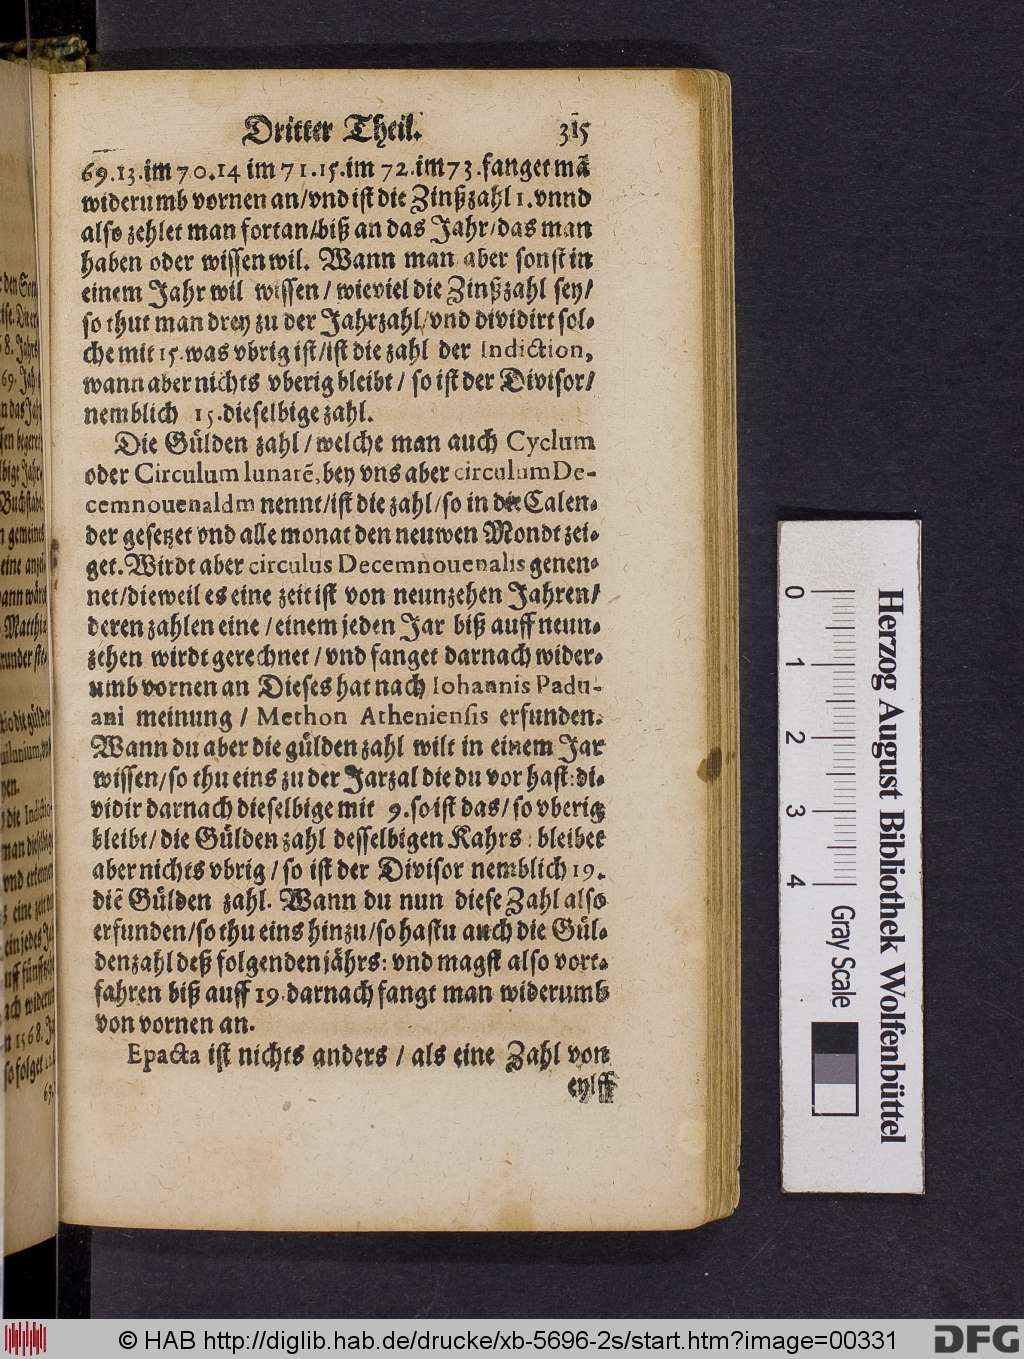 Dritter Theil. 315
69.13.im 70.14 im 71.15.im 72.im 73.fanget mã
widerumb vornen an/vnd ist die Zinßzahl 1. vnnd
also zehlet man fortan/biß an das Jahr/das man
haben oder wissen wil. Wann man aber sonst in
einem Jahr wil wissen / wieviel die Zinßzahl sey/
so thut man drey zu der Jahrzahl/vnd dividirt sol-
che mit 15.was vbrig ist/ist die zahl der Indiction,
wann aber nichts vberig bleibt / so ist der Divisor/
nemblich 15.dieselbige zahl.
Die Gülden zahl / welche man auch Cyclum
oder Circulum lunarē, bey vns aber circulum De-
cemnouenaldm nennt/ist die zahl/so in der Calen-
der gesetzet vnd alle monat den neuwen Mondt zei-
get. Wirdt aber circulus Decemnouenalis genen-
net/dieweil es eine zeit ist von neunzehen Jahren/
deren zahlen eine / einem jeden Jar biß auff neun-
zehen wirdt gerechnet / vnd fanget darnach wider-
umb vornen an Dieses hat nach Iohannis Padu-
ani meinung / Methon Atheniensis erfunden.
Wann du aber die gülden zahl wilt in einem Jar
wissen/so thu eins zu der Jarzal die du vor hast: di-
vidir darnach dieselbige mit 9.so ist das/ so vberig
bleibt/ die Gülden zahl desselbigen Kahrs : bleibet
aber nichts vbrig / so ist der Divisor nemblich 19.
diē Gülden zahl. Wann du nun diese Zahl also
erfunden/so thu eins hinzu/so hastu auch die Gül-
den zahl deß folgenden jährs: vnd magst also vort-
fahren biß auff 19.darnach fangt man widerumb
von vornen an.
Epacta ist nichts anders / als eine Zahl von
eylff
Herzog August Bibliothek Wolfenbüttel
0 1 2 3 4 Gray Scale
© HAB http://diglib.hab.de/drucke/xb-5696-2s/start.htm?image=00331
DFG